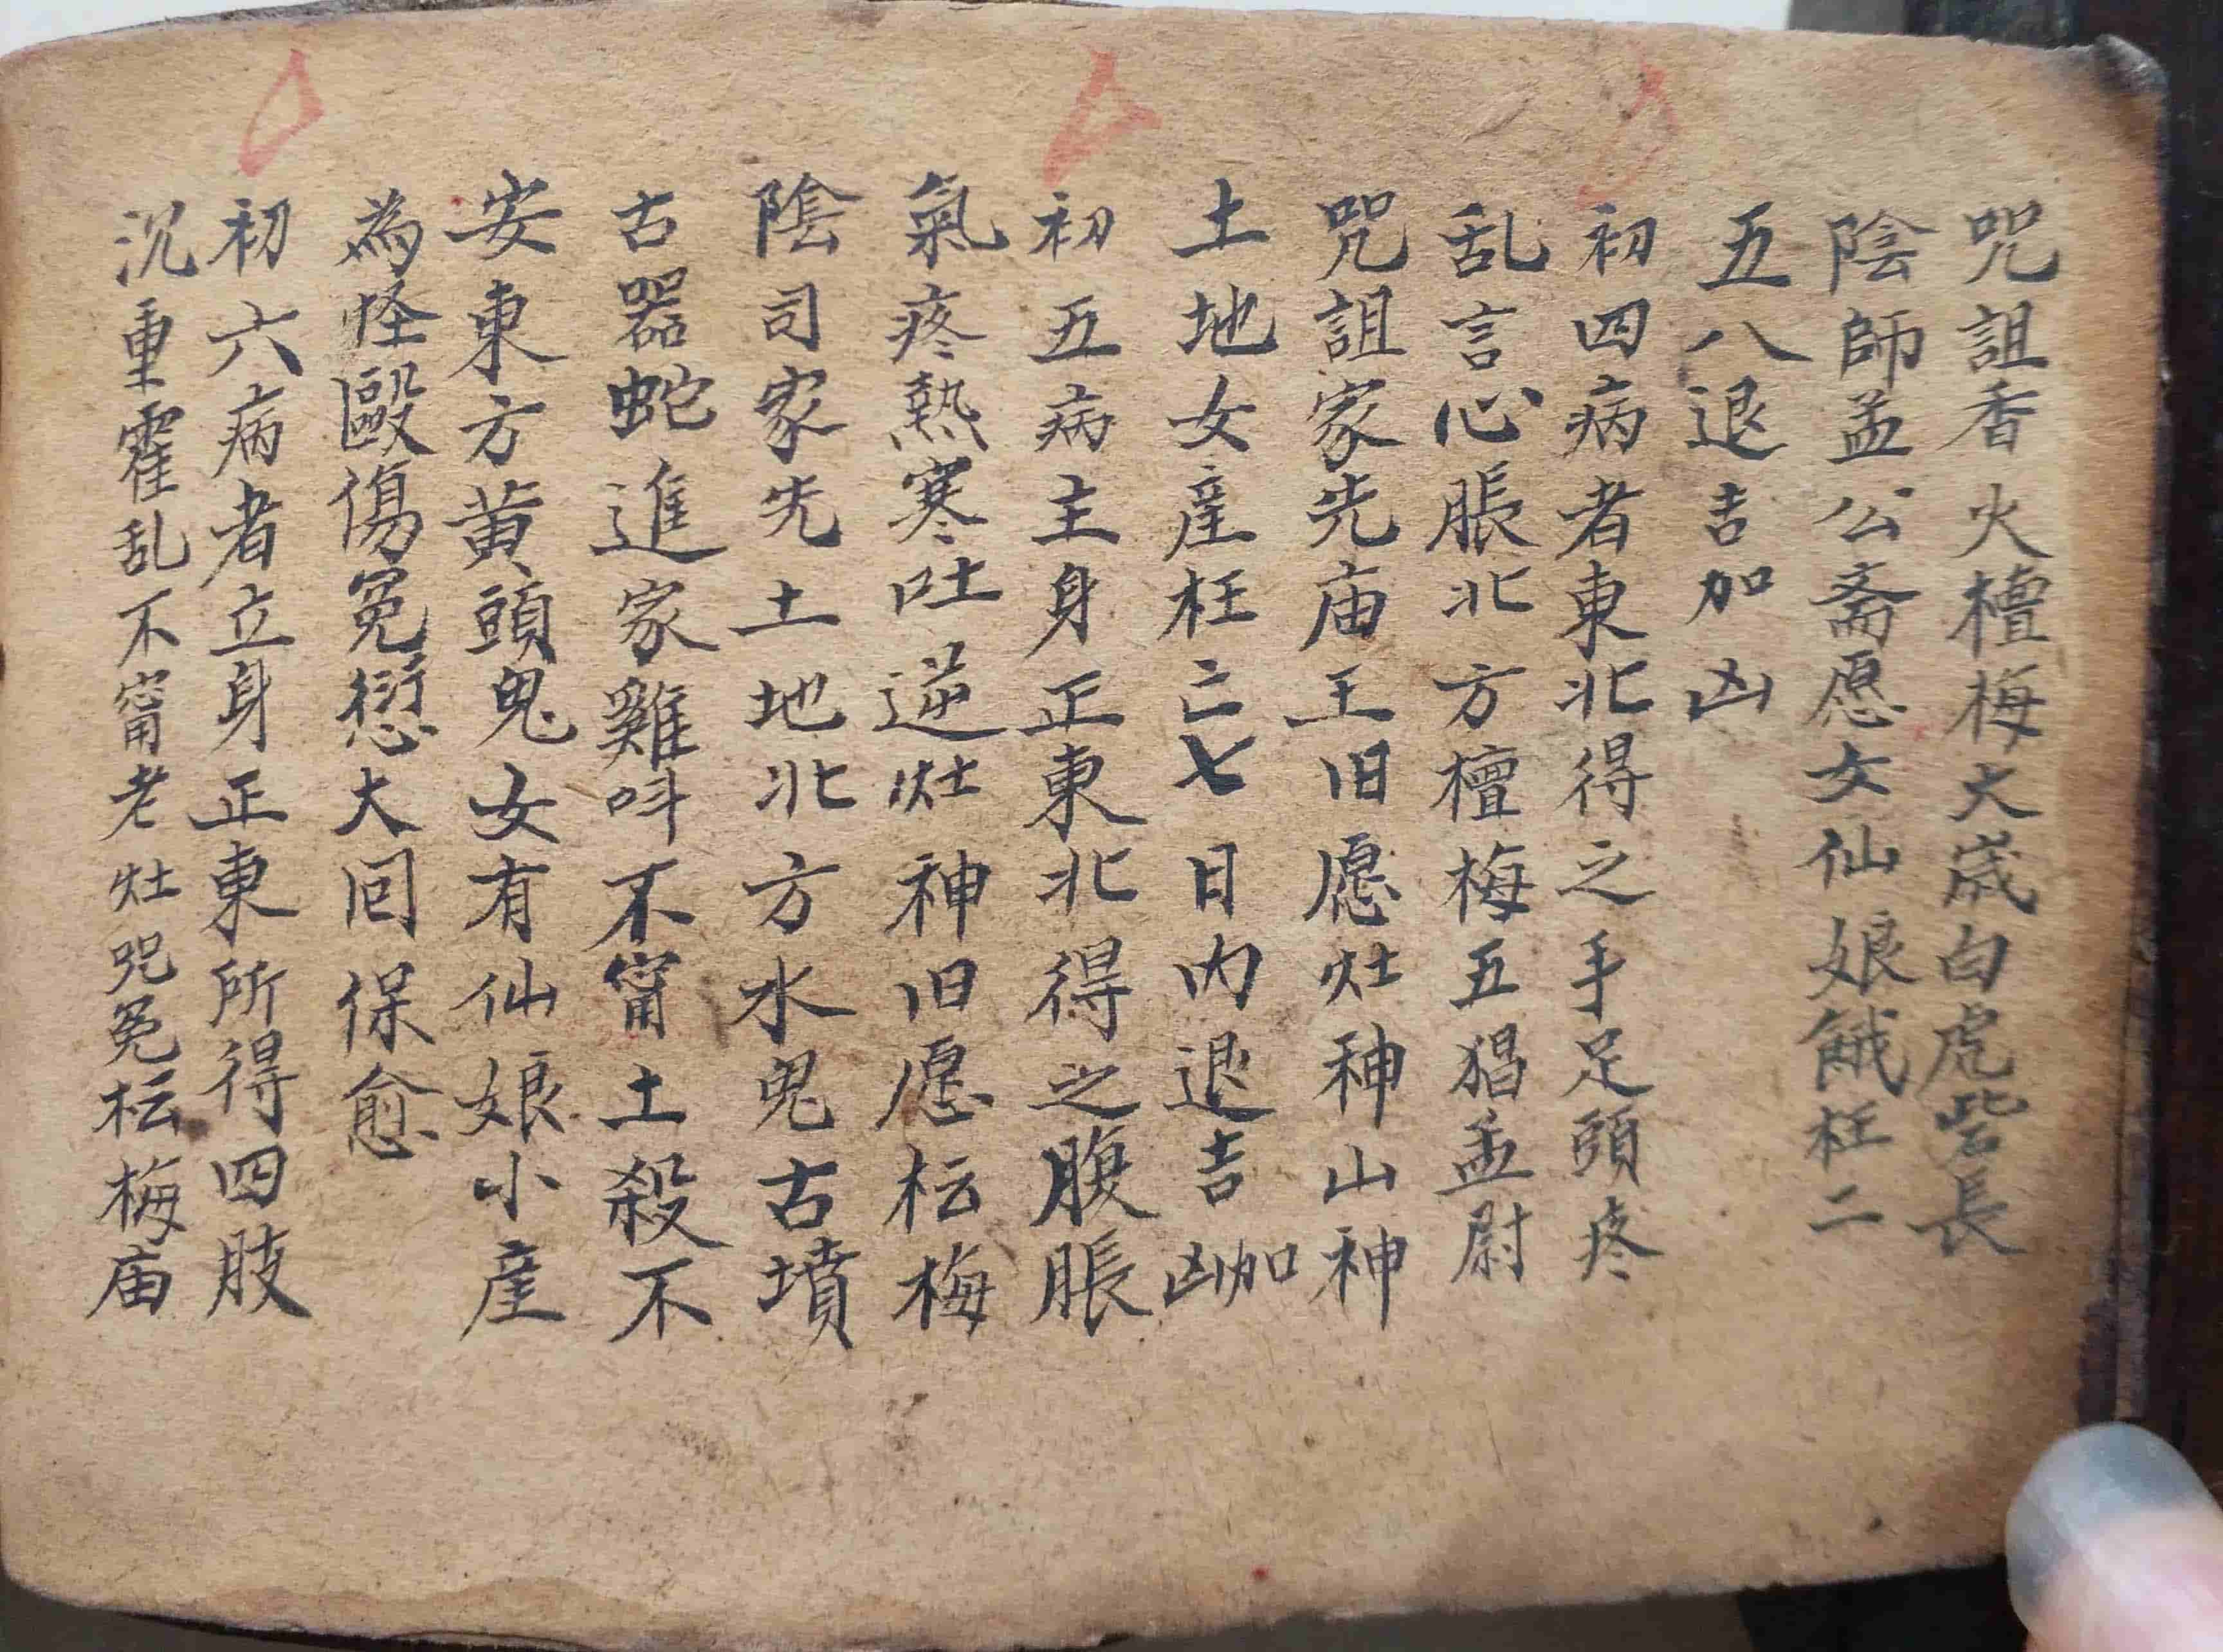 咒詛香火檀梅大歲白虎呰長
陰師孟公斋愿女仙娘餓枉二
五八退吉加凶
初四病者東北得之手足頭疼
乱言心脹北方檀梅五猖孟尉
咒詛家先庙王旧愿灶神山神
土地女産枉亡七日内退吉凶加
初五病主身正東北得之腹脹
氣疼熱寒吐逆灶神旧愿枟梅
陰司家先土地北方水鬼古墳
古器蛇進家雞呌不甯土殺不
安東方黄頭鬼女有仙娘小産
為怪毆傷冤愆大囘保愈
初六病者立身正東所得四肢
沉重霍乱不甯老灶咒冤枟梅庙